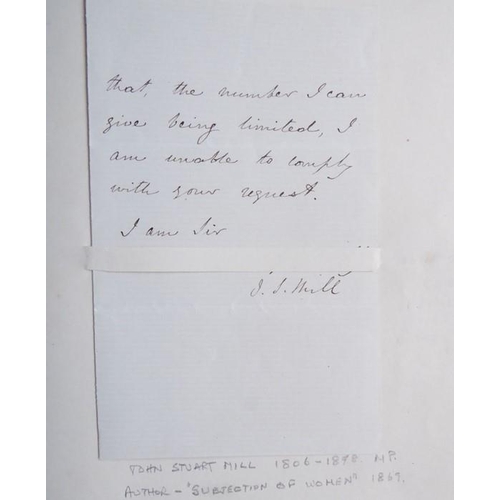 that, the number I can
give being limited, I
am unable to comply
with your request.
I am Sir
J. S. Mill
JOHN STUART MILL 1806-1898 MP.
AUTHOR - "SUBJECTION OF WOMEN" 1869.